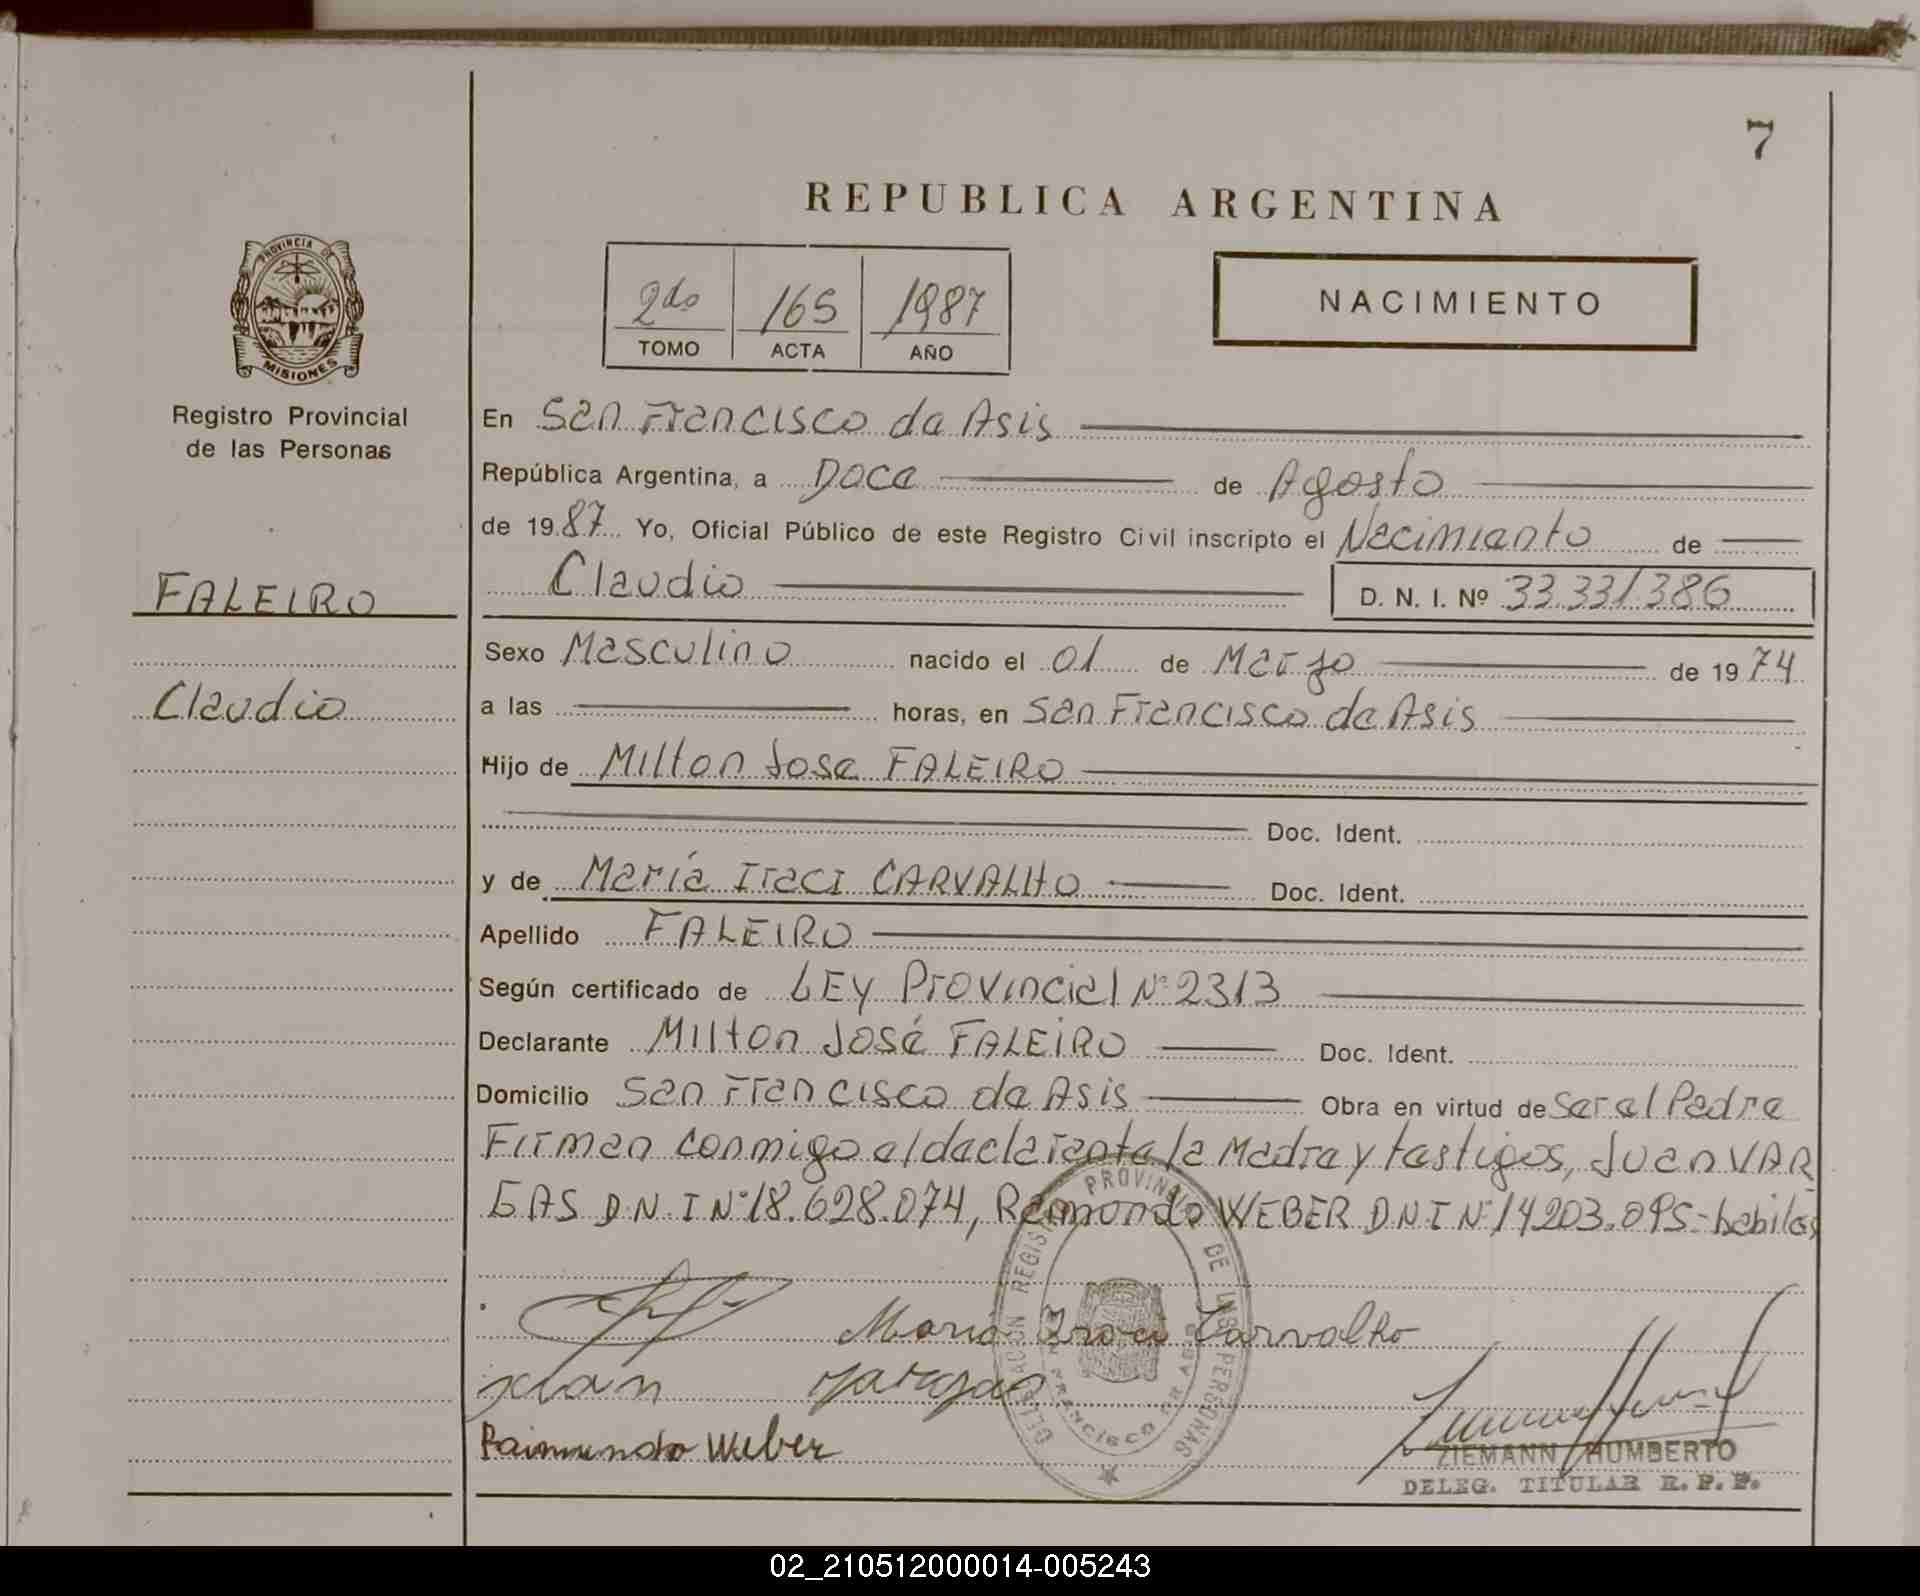 7
REPUBLICA ARGENTINA
PROVINCIA DE
MISIONES
Registro Provincial
de las Personas
2do 165 1987
TOMO ACTA AÑO
NACIMIENTO
En San Francisco de Asis
República Argentina, a Doce de Agosto
de 1987 Yo, Oficial Público de este Registro Civil inscripto el Nacimiento de
Claudio D. N. I. Nº 33.331386
FALEIRO
Claudio
Sexo Masculino nacido el 01 de Marzo de 1974
a las horas, en San Francisco de Asis
Hijo de Milton Jose FALEIRO
Doc. Ident.
y de María Iraci CARVALHO Doc. Ident.
Apellido FALEIRO
Según certificado de LEy Provincial Nº 2313
Declarante Milton José FALEIRO Doc. Ident.
Domicilio San Francisco de Asis Obra en virtud de Ser el Padre
Firman conmigo el declarante la Madre y testigos, Juan VAR
GAS D.N.I Nº 18.628.074, Raimondo WEBER D.N.I Nº 14203.095- habiles
DELEGACION REGISTRO PROVINCIAL DE LAS PERSONAS
Maria Iraci Carvalho
Juan Vargas
Raimundo Weber
ZIEMANN HUMBERTO
DELEG. TITULAR R. P. P.
02_210512000014-005243